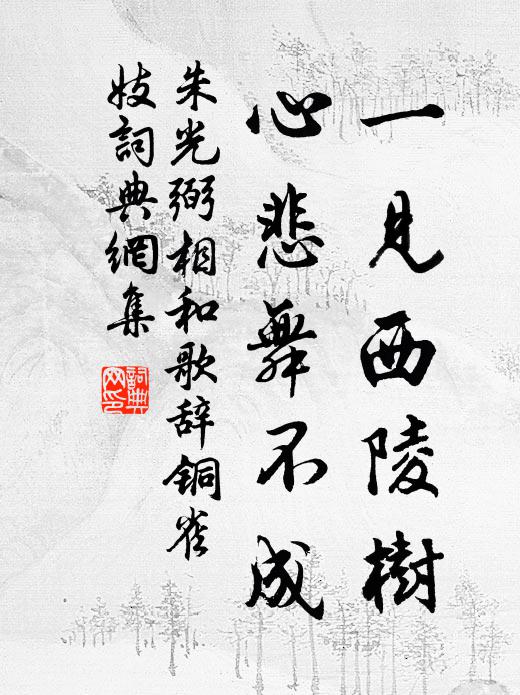 一見西陵樹
心悲舞不成
朱光弼相和歌辞铜雀
妓詞典網集
詞典網印